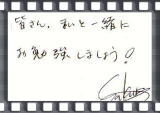 皆さん、私と一緒に
お勉強しましょう!